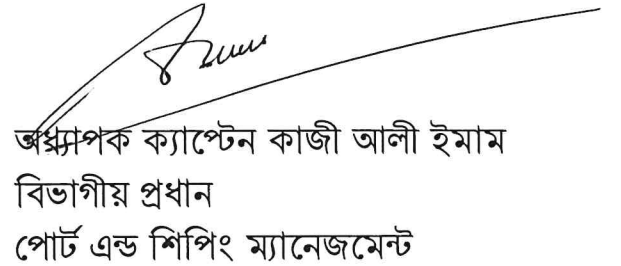 অধ্যাপক ক্যাপ্টেন কাজী আলী ইমাম
বিভাগীয় প্রধান
পোর্ট এন্ড শিপিং ম্যানেজমেন্ট